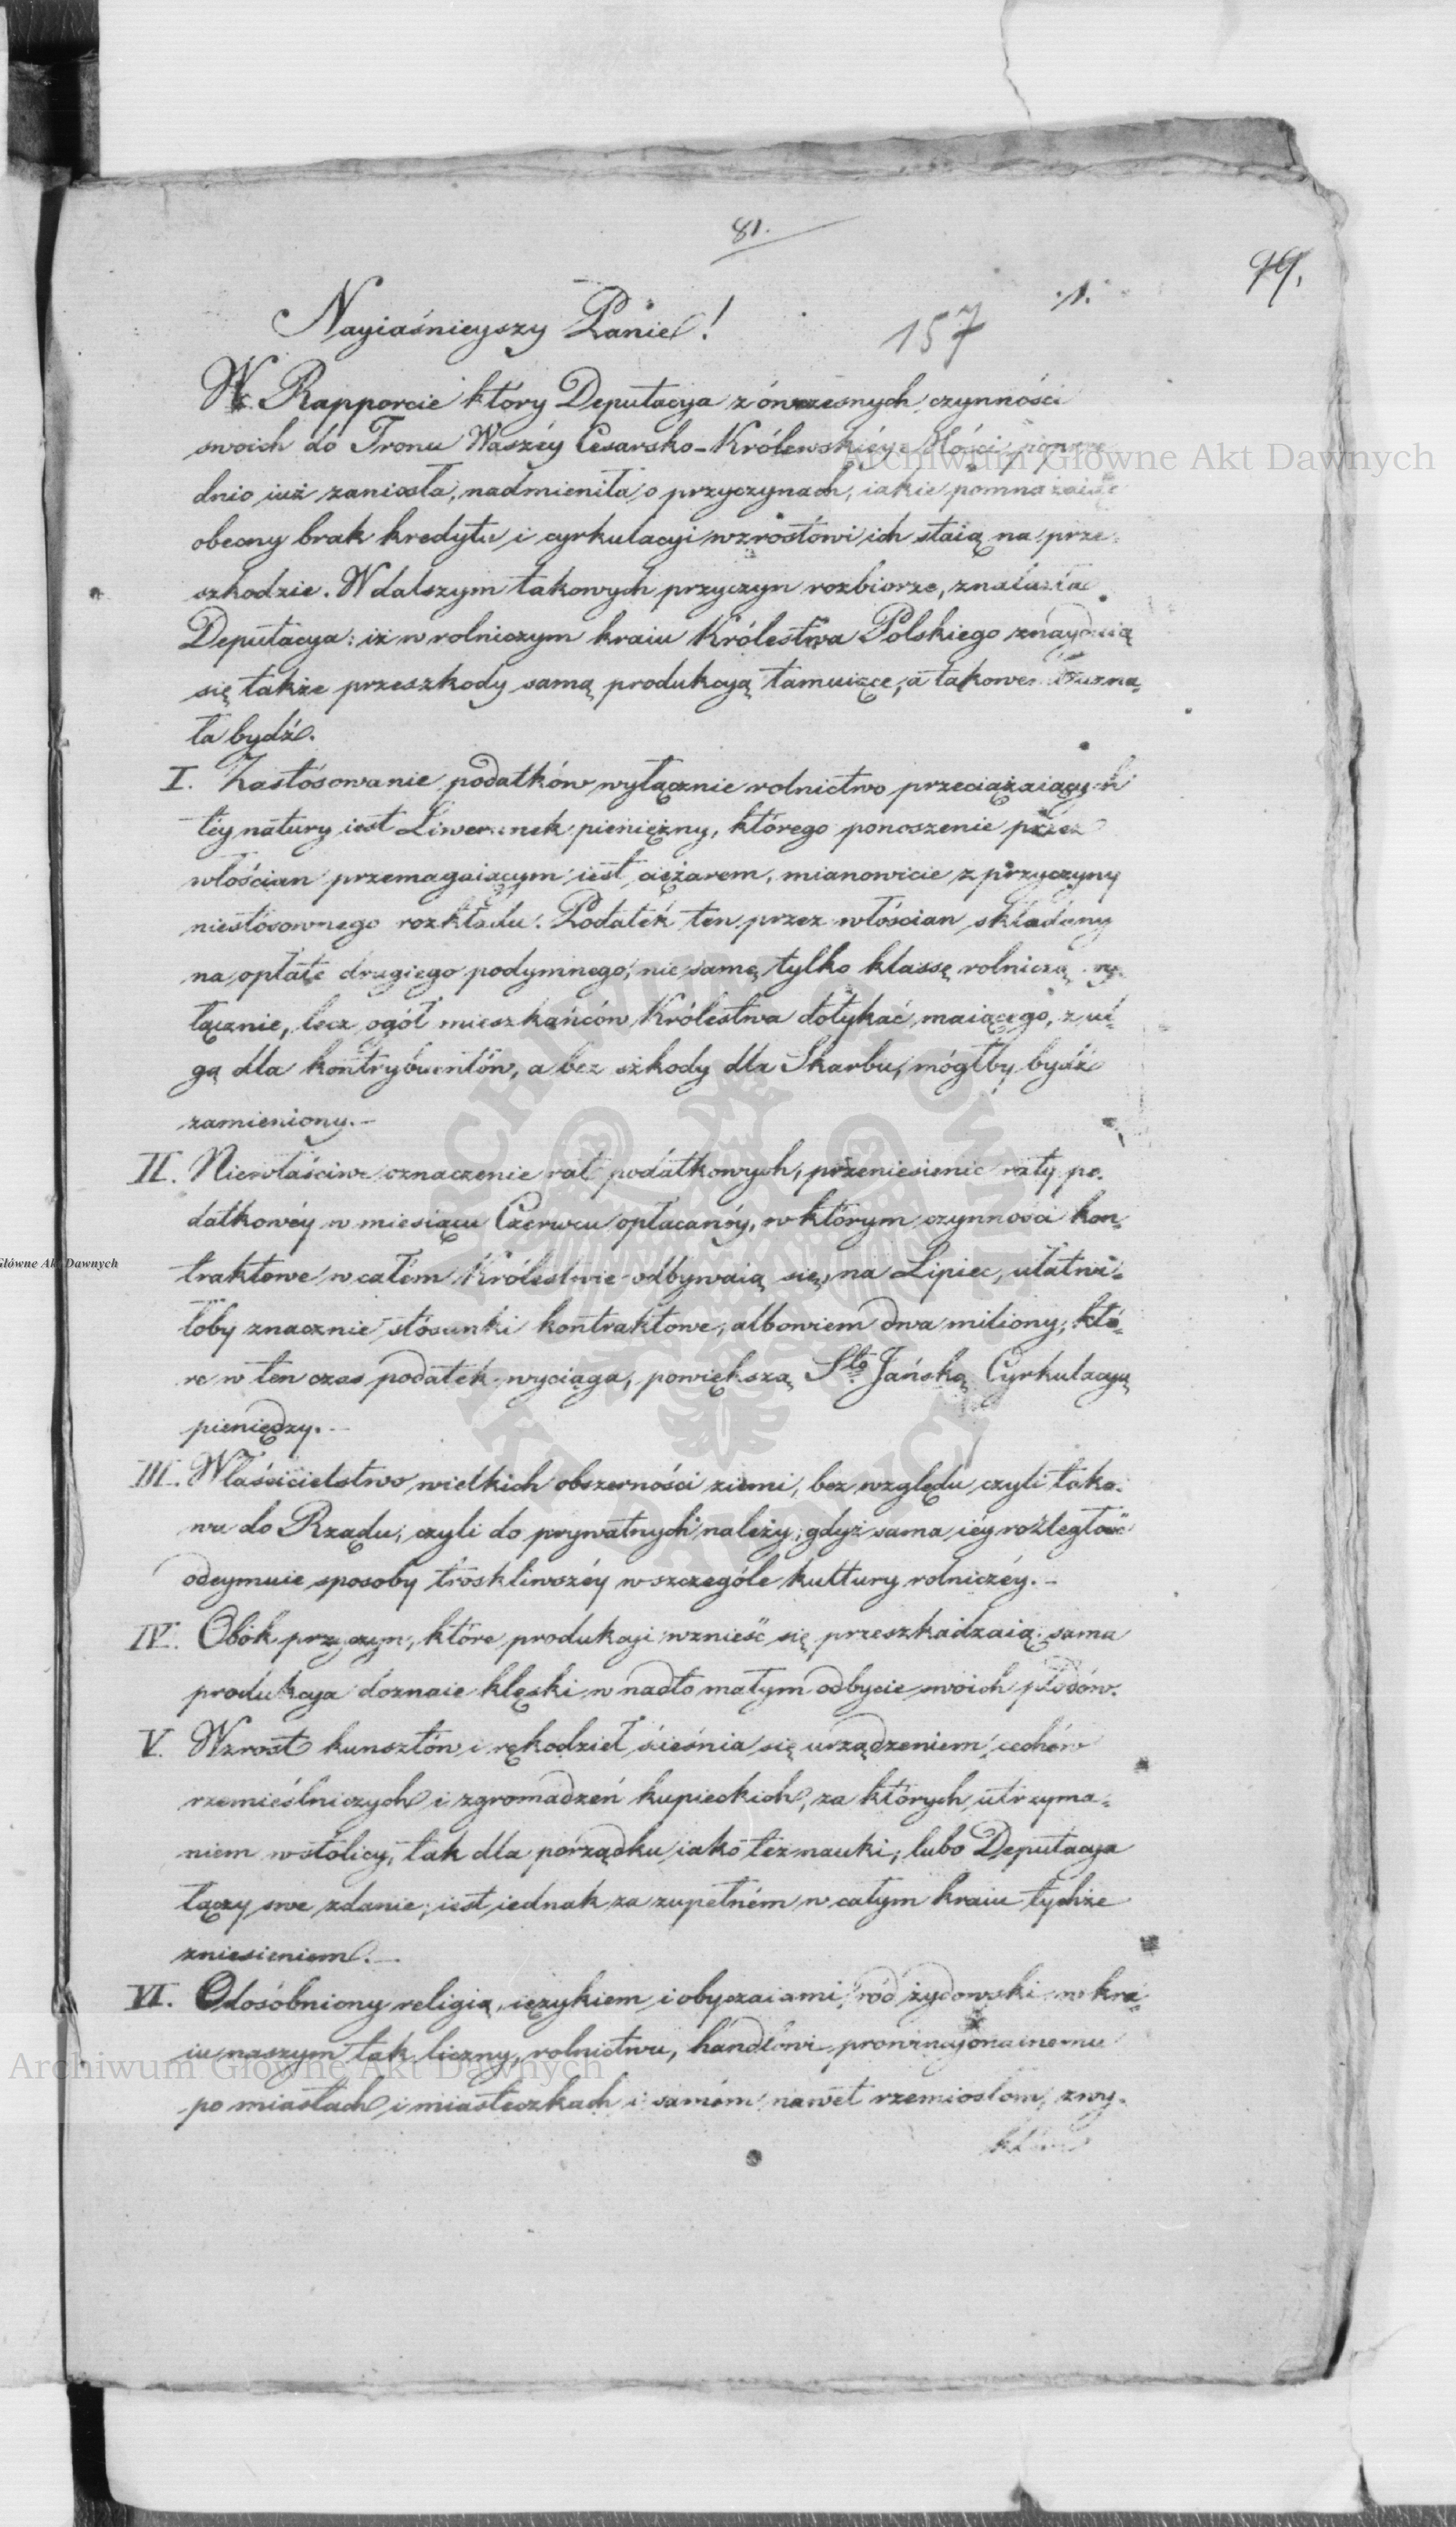 81.
99.
:/1.
157
Nayiaśnieyszy Panie!
W Rapporcie który Deputacya z ówczesnych czynności
swoich do Tronu Waszéy Cesarsko-Królewskiéy Mości poprze
dnio iuż zaniosła, nadmieniła o przyczynach, iakie pomnażaiąc
obecny brak kredytu i cyrkulacyi wzrostowi ich staią na prze-
szkodzie. W dalszym takowych przyczyn rozbiorze, znalazła
Deputacya: iż w rolniczym kraiu Królestwa Polskiego znayduią
się także przeszkody samą produkcyą tamuiące, a takowe uzna-
ła bydź.
I. Zastósowanie podatków wyłącznie rolnictwo przeciążaiących
téy natury iest Liwerunek pieniężny, którego ponoszenie przez
włościan przemagaiącym iest ciężarem, mianowicie z przyczyny
niestósownego rozkładu. Podatek ten przez włościan składany
na opłatę drugiego podymnego, nie samę tylko klassę rolniczą wy-
łącznie, lecz ogół mieszkańców Królestwa dotykać maiącego, z ul-
gą dla kontrybuentów, a bez szkody dla Skarbu, mógłby bydź
zamieniony.-
II. Niewłaściwe oznaczenie rat podatkowych, przeniesienie raty po-
datkowéy w miesiącu Czerwcu opłacanéy, w którym czynności kon-
traktowe w całem Królestwie odbywaią się, na Lipiec, ułatwi-
łoby znacznie stósunki kontraktowe, albowiem dwa miliony, któ-
re w ten czas podatek wyciąga, powiększą Sto Jańską Cyrkulacyą
pieniędzy.-
III. Właścicielstwo wielkich obszerności ziemi, bez względu czyli tako-
wa do Rządu, czyli do prywatnych należy, gdyż sama iéy rozległość
odeymuie sposoby troskliwszéy w szczególe kultury rolniczéy.-
IV. Obok przyczyn, które produkcyi wznieść się przeszkadzaią, sama
produkcya doznaie klęski w nadto małym odbycie swoich płodów.
V. Wzrost kunsztów i rękodzieł ścieśnia się urządzeniem cechów
rzemieślniczych i zgromadzeń kupieckich, za których utrzyma-
niem w stolicy, tak dla porządku iako też nauki, lubo Deputacya
łączy swe zdanie, iest iednak za zupełném w całym kraiu tychże
zniesieniem.-
VI. Odosobniony religią, ięzykiem i obyczaiami, ród żydowski w kra-
iu naszym tak liczny, rolnictwu, handlowi prowincyonalnemu
po miastach i miasteczkach i samém nawet rzemiosłom, zwy-
Archiwum Główne Akt Dawnych
Główne Akt Dawnych
Archiwum Główne Akt Dawnych
ARCHIWUM GŁÓWNE AKT DAWNYCH